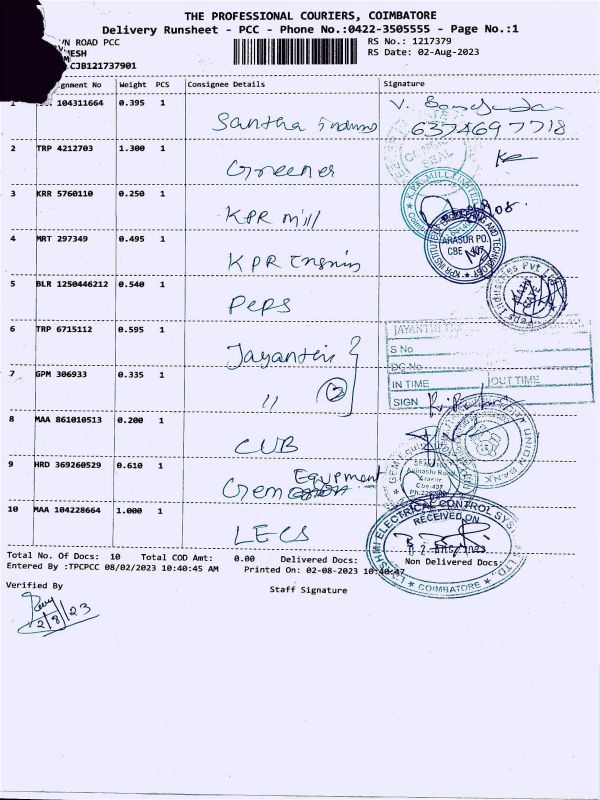 THE PROFESSIONAL COURIERS, COIMBATORE
Delivery Runsheet - PCC - Phone No.:0422-3505555 - Page No.:1
VN ROAD PCC
MESH
CJB121737901
RS No.: 1217379
RS Date: 02-Aug-2023
gnment No Weight PCS Consignee Details Signature
104311664 0.395 1 Santha
6374697718
2 TRP 4212703 1.300 1 Greener
3 KRR 5760110 0.250 1 KPR mill
4 MRT 297349 0.495 1 KPR
5 BLR 1250446212 0.540 1 Peps
6 TRP 6715112 0.595 1 Jayanthi
7 GPM 306933 0.335 1 " 2
8 MAA 861010513 0.200 1 CUB
9 HRD 369260529 0.610 1 Gem Equpment
10 MAA 104228664 1.000 1 LECS
K.P.R. MILL LIMITED
KPR INSTITUTE OF ENGINEERING AND TECHNOLOGY
ARASUR PO.
CBE - 407
Peps Industries Pvt Ltd
MAIN GATE
JAYANTHI
S No
DC No
IN TIME OUT TIME
SIGN
UNION BANK
Avinashi Road
Arasur
Cbe-407
LAKSHMI ELECTRICAL CONTROL SYSTEMS LTD.
RECEIVED ON
02 AUG 2023
COIMBATORE
Total No. Of Docs: 10 Total COD Amt: 0.00 Delivered Docs: Non Delivered Docs:
Entered By :TPCPCC 08/02/2023 10:40:45 AM Printed On: 02-08-2023 10:40:47
Verified By
Staff Signature
2/8/23